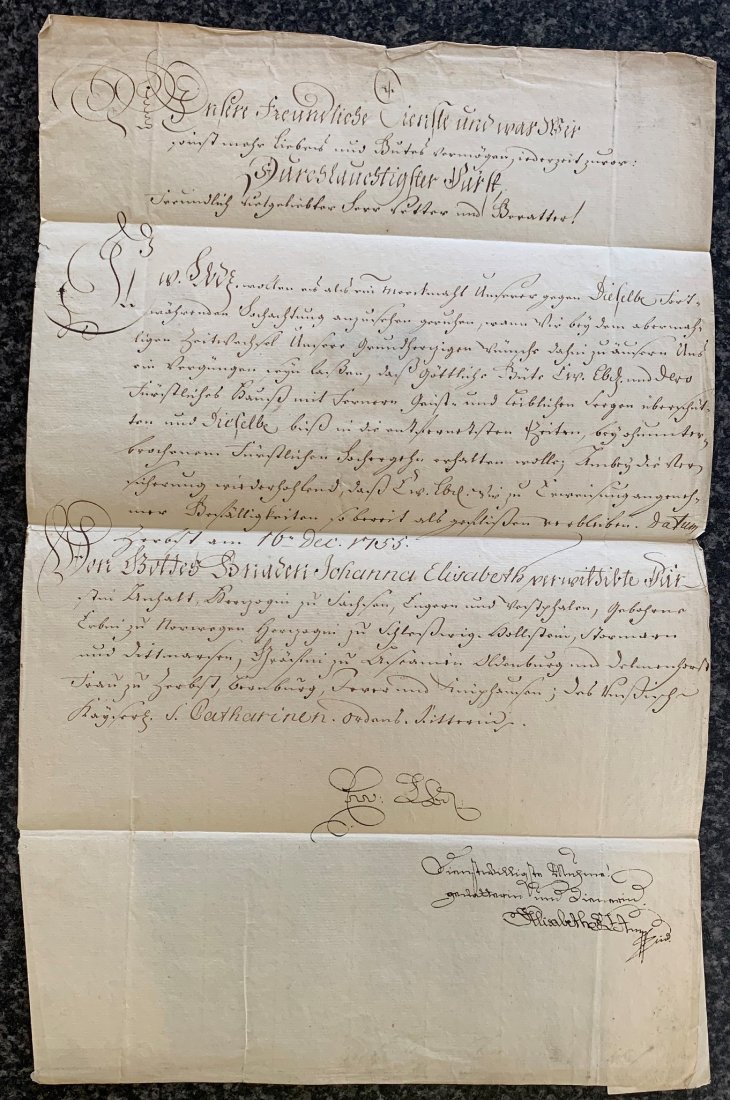 Unsere Freundliche Dienste und was Wir
sonst mehr Liebes und Gutes vermögen, jederzeit zuvor:
Durchlauchtigster Fürst,
Freundlich vielgeliebter Herr Vetter und Gevatter!
Ew. Lbd. wollen es als ein Merckmahl Unserer gegen Dieselbe fort-
währenden Hochachtung anzusehen geruhen, wann Wir bey dem abermah-
ligen Zeitwechsel Unsere Grundherzigen Wünsche dahin zu äusern Uns
ein Vergnügen seyn laßen, daß Göttliche Güte Ew. Lbd. und Dero
Fürstliches Hauß mit fernern Geist- und Leiblichen Seegen überschüt-
ten und Dieselbe biß in die entferntesten Zeiten, bey ohnunter-
brochenem Fürstlichen Hochergehn erhalten wolle; Anbey die Ver-
sicherung wiederhohlend, daß Ew. Lbd. Wir zu Erweisung angeneh-
mer Gefälligkeiten so bereit als geflißen verbleiben. Datum
Zerbst am 10n Dec. 1755.
Von Gottes Gnaden Johanna Elisabeth verwittibte Für-
stin Anhalt, Herzogin zu Sachsen, Engern und Westphalen, Gebohrne
Erbin zu Norwegen Herzogin zu Schleßwig-Hollstein, Stormarn
und Dittmarsen, Gräfin zu Ascanien Oldenburg und Delmenhorst
Frau zu Zerbst, Bernburg, Jever und Kniphausen; des Rußisch-
Kayserl. S. Catharinen-Ordens-Ritterin.
Ew. Lbd.
Dienstwilligste Muhme
gevatterin und Dienerin
Elisabeth